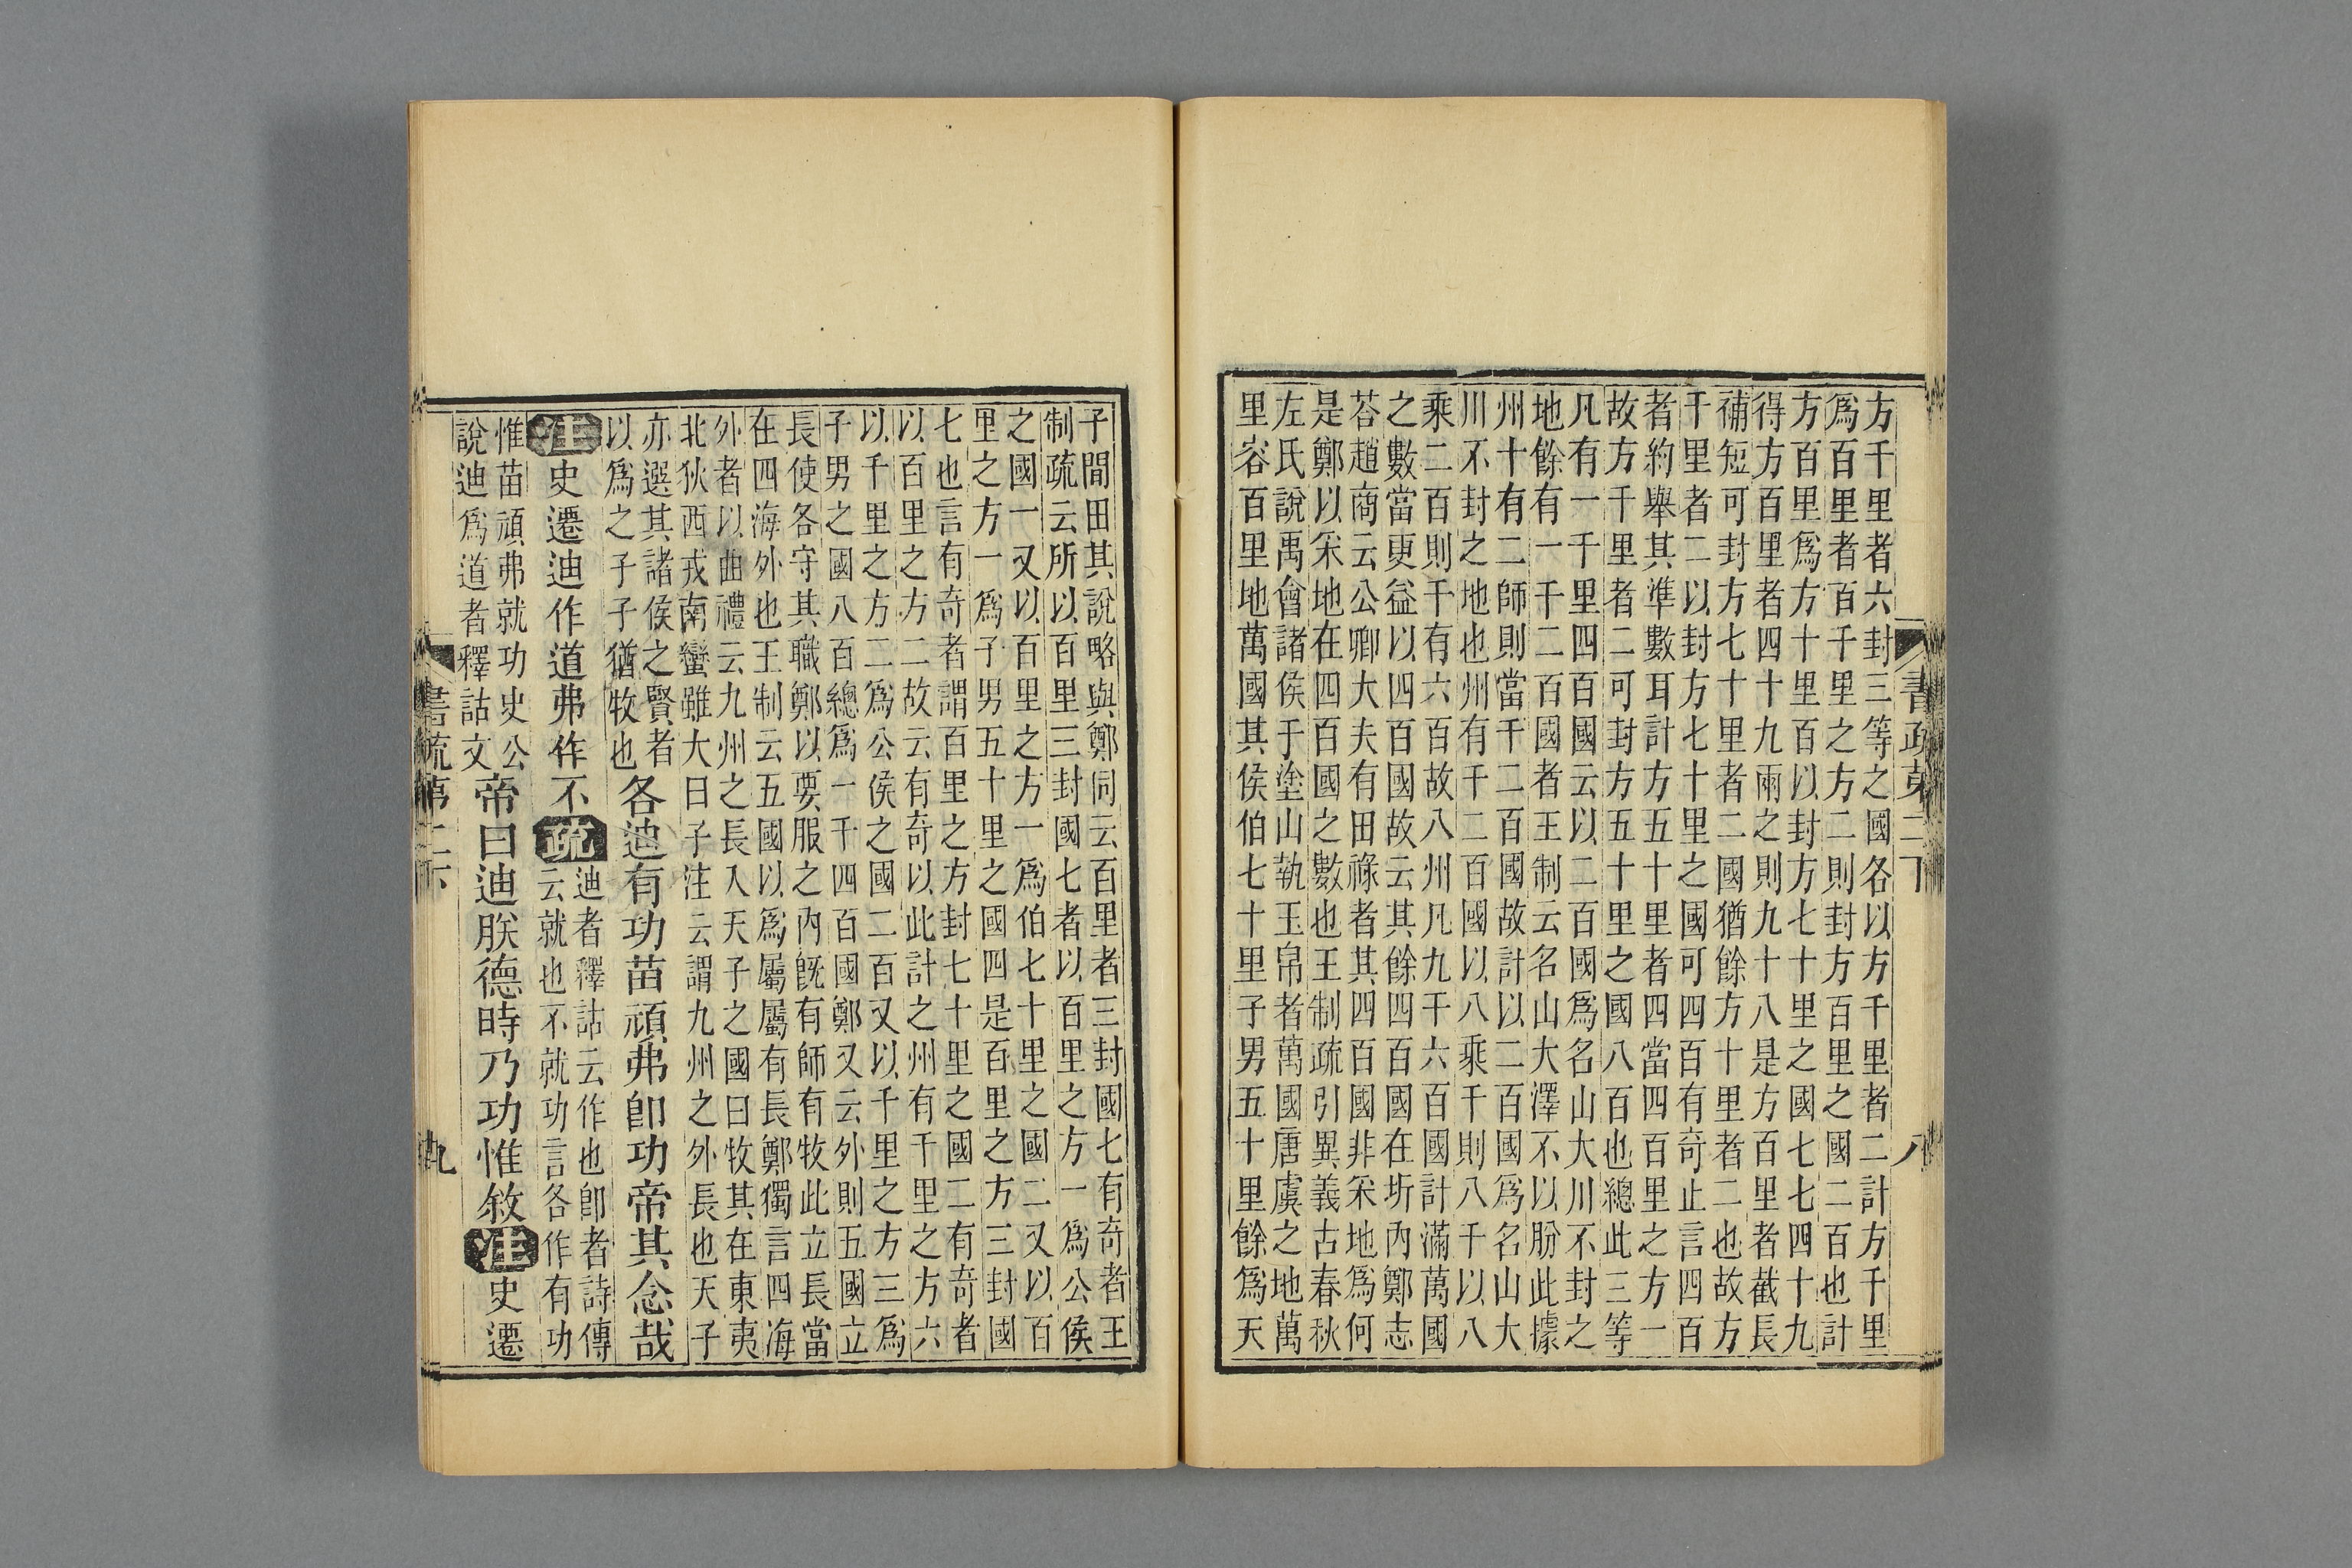 方千里者六封三等之國各以方千里者二計方千里
爲百里者百千里之方二則封方百里之國二百也計
方百里爲方十里百以封方七十里之國七七四十九
得方百里者四十九兩之則九十八是方百里者截長
補短可封方七十里者二國猶餘方十里者二也故方
千里者二以封方七十里之國可四百有奇止言四百
者約舉其準數耳計方五十里者四當四百里之方一
故方千里者二可封方五十里之國八百也總此三等
凡有一千里四百國云以二百國爲名山大川不封之
地餘有一千二百國者王制云名山大澤不以朌此據
州十有二師則當千二百國故計以二百國爲名山大
川不封之地也州有千二百國以八乘千則八千以八
乘二百則千有六百故八州凡九千六百國計滿萬國
之數當更益以四百國故云其餘四百國在圻內鄭志
荅趙商云公卿大夫有田祿者其四百國非采地爲何
是鄭以采地在四百國之數也王制疏引異義古春秋
左氏說禹會諸侯于塗山執玉帛者萬國唐虞之地萬
里容百里地萬國其侯伯七十里子男五十里餘爲天
書疏第二下 八
子閒田其說略與鄭同云百里者三封國七有奇者王
制疏云所以百里三封國七者以百里之方一爲公侯
之國一又以百里之方一爲伯七十里之國二又以百
里之方一爲子男五十里之國四是百里之方三封國
七也言有奇者謂百里之方封七十里之國二有奇者
以百里之方二故云有奇以此計之州有千里之方六
以千里之方二爲公侯之國二百又以千里之方三爲
子男之國八百總爲一千四百國鄭又云外則五國立
長使各守其職鄭以要服之內既有師有牧此立長當
在四海外也王制云五國以爲屬屬有長鄭獨言四海
外者以曲禮云九州之長入天子之國曰牧其在東夷
北狄西戎南蠻雖大曰子注云謂九州之外長也天子
亦選其諸侯之賢者
以爲之子子猶牧也
各迪有功苗頑弗卽功帝其念哉
注史遷迪作道弗作不疏
迪者釋詁云作也卽者詩傳
云就也不就功言各作有功
惟苗頑弗就功史公
說迪爲道者釋詁文
帝曰迪朕德時乃功惟敘注史遷
書疏第二下 九